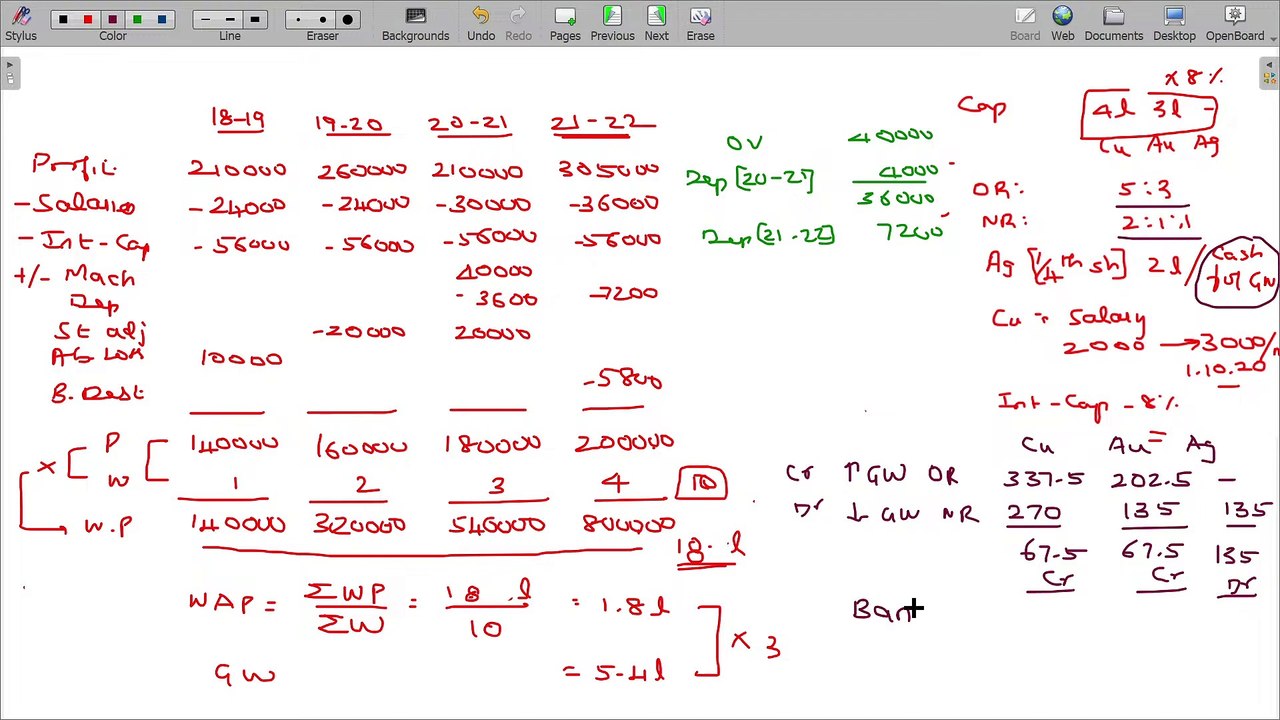 Stylus Color Line Eraser Backgrounds Undo Redo Pages Previous Next Erase Board Web Documents Desktop OpenBoard
18-19 19-20 20-21 21-22
Profit 210000 260000 210000 305000
- Salaries - 24000 - 24000 - 30000 - 36000
- Int - Cap - 56000 - 56000 - 56000 - 56000
+/- Mach 40000
Dep - 3600 - 7200
St adj - 20000 20000
Ab Loss 10000
B. Debt - 5800
P 140000 160000 180000 200000
x W 1 2 3 4 10
W.P 140000 320000 540000 800000
18. l
WAP = ΣWP / ΣW = 18 .l / 10 = 1.8 l
GW = 5.4 l x 3
OV 40000
Dep [20-21] 4000
36000
Dep [21-22] 7200
x 8%
Cap 4l 3l -
Cu Au Ag
OR: 5:3
NR: 2:1:1
Ag [1/4th sh] 2l / Cash for GW
Cu - Salary
2000 → 3000/m
1.10.20
Int - Cap - 8%
Cu Au Ag
Cr ↑ GW OR 337.5 202.5 -
Dr ↓ GW NR 270 135 135
67.5 67.5 135
Cr Cr Dr
Ban